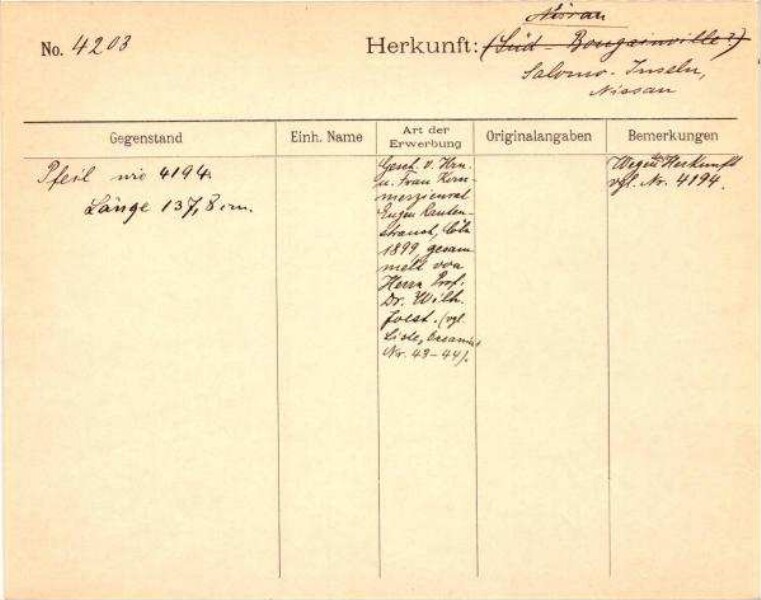 Nissan
No. 4203 Herkunft: (Süd-Bougainville?)
Salomo-Inseln,
Nissan
Gegenstand
Einh. Name
Art der
Erwerbung
Originalangaben
Bemerkungen
Pfeil wie 4194.
Länge 137,8 cm.
Gesch. v. Hrn.
u. Frau Kom-
merzienrat
Eugen Rauten-
strauch, Cöln
1899, gesam
melt von
Herrn Prof.
Dr. Wilh.
Joest. (vgl.
Liste,
Nr. 43-44).
Wegen Herkunft
vgl. Nr. 4194.